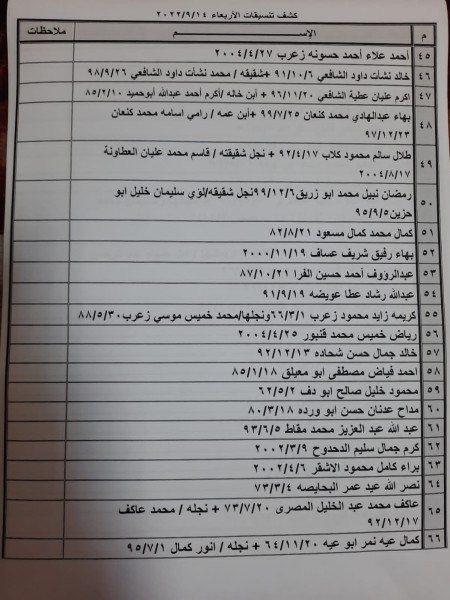 كشف تنسيقات الأربعاء ٢٠٢٢/٩/١٤
م الإســـــم ملاحظات
٤٥ أحمد علاء أحمد حسونه زعرب ٢٠٠٤/٤/٢٧
٤٦ خالد نشأت داود الشافعي ٩١/١٠/٦ +شقيقه / محمد نشأت داود الشافعي ٩٨/٩/٢٦
٤٧ اكرم عليان عطية الشافعي ٩٦/١١/٢٠ + أبن خاله /أكرم أحمد عبدالله أبوحميد ٨٥/٢/١٠
٤٨ بهاء عبدالهادي محمد كنعان ٩٩/٧/٢٥ +أبن عمه / رامي اسامه محمد كنعان
٩٧/١٢/٢٣
٤٩ طلال سالم محمود كلاب ٩٢/٤/١٧ + نجل شقيقته / قاسم محمد عليان العطاونة
٢٠٠٤/٨/١٧
٥٠ رمضان نبيل محمد ابو زريق٩٩/١٢/٦نجل شقيقه/لؤي سليمان خليل ابو
حزين٩٥/٩/٥
٥١ كمال محمد كمال مسعود ٨٢/٨/٢١
٥٢ بهاء رفيق شريف عساف ٢٠٠٠/١١/١٩
٥٣ عبدالرؤوف أحمد حسين الفرا ٨٧/١٠/٢١
٥٤ عبدالله رشاد عطا عويضه ٩١/٩/١٩
٥٥ كريمه زايد محمود زعرب ٦٦/٣/١ونجلها/محمد خميس موسي زعرب٨٨/٥/٣٠
٥٦ رياض خميس محمد قنبور ٢٠٠٤/٤/٢٥
٥٧ خالد جمال حسن شحاده ٩٢/١٢/١٣
٥٨ احمد فياض مصطفى ابو معيلق ٨٥/١/١٨
٥٩ محمود خليل صالح ابو دف ٦٢/٥/٢
٦٠ مداح عدنان حسن ابو ورده ٨٠/٣/١٨
٦١ عبد الله عبد العزيز محمد مقاط ٩٣/٦/٥
٦٢ كرم جمال سليم الدحدوح ٢٠٠٢/٣/٩
٦٣ براء كامل محمود الاشقر ٢٠٠٢/٤/٦
٦٤ نصر الله عيد عمر البحابصه ٧٣/٣/٤
٦٥ عاكف محمد عبد الخليل المصرى ٧٣/٧/٢٠ + نجله / محمد عاكف
٩٢/١٢/١٧
٦٦ كمال عيه نمر ابو عيه ٦٤/١١/٢٠ + نجله / انور كمال ٩٥/٧/١